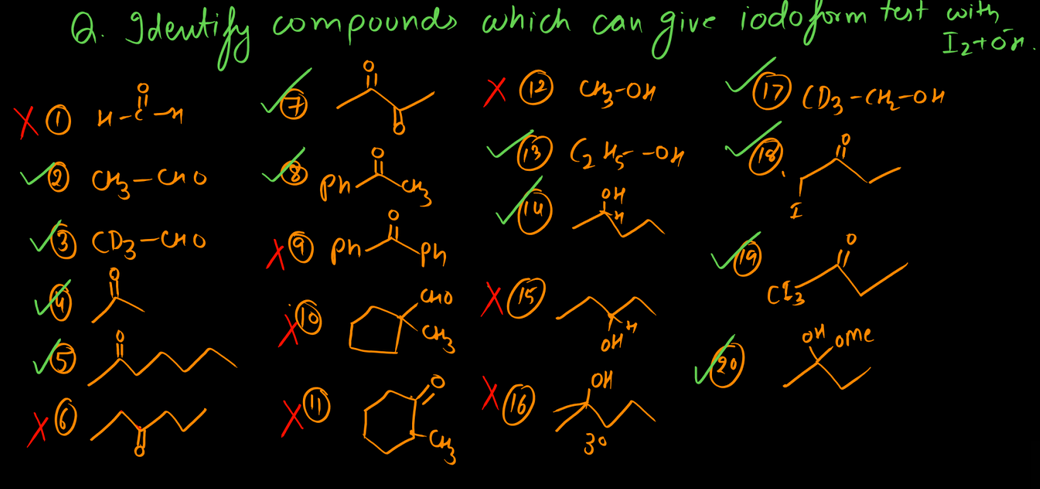 Q. Identify compounds which can give iodoform test with
I2 + ŌH.
1 H-C-H
O
2 CH3-CHO
3 CD3-CHO
4 O
5 O
6 O
7 O
O
8 Ph CH3
O
9 Ph Ph
O
10 CHO
CH3
11 O
CH3
12 CH3-OH
13 C2H5-OH
14 OH
H
15 H
OH
16 OH
3°
17 CD3-CH2-OH
18. O
I
19 O
CI3
20 OH OMe